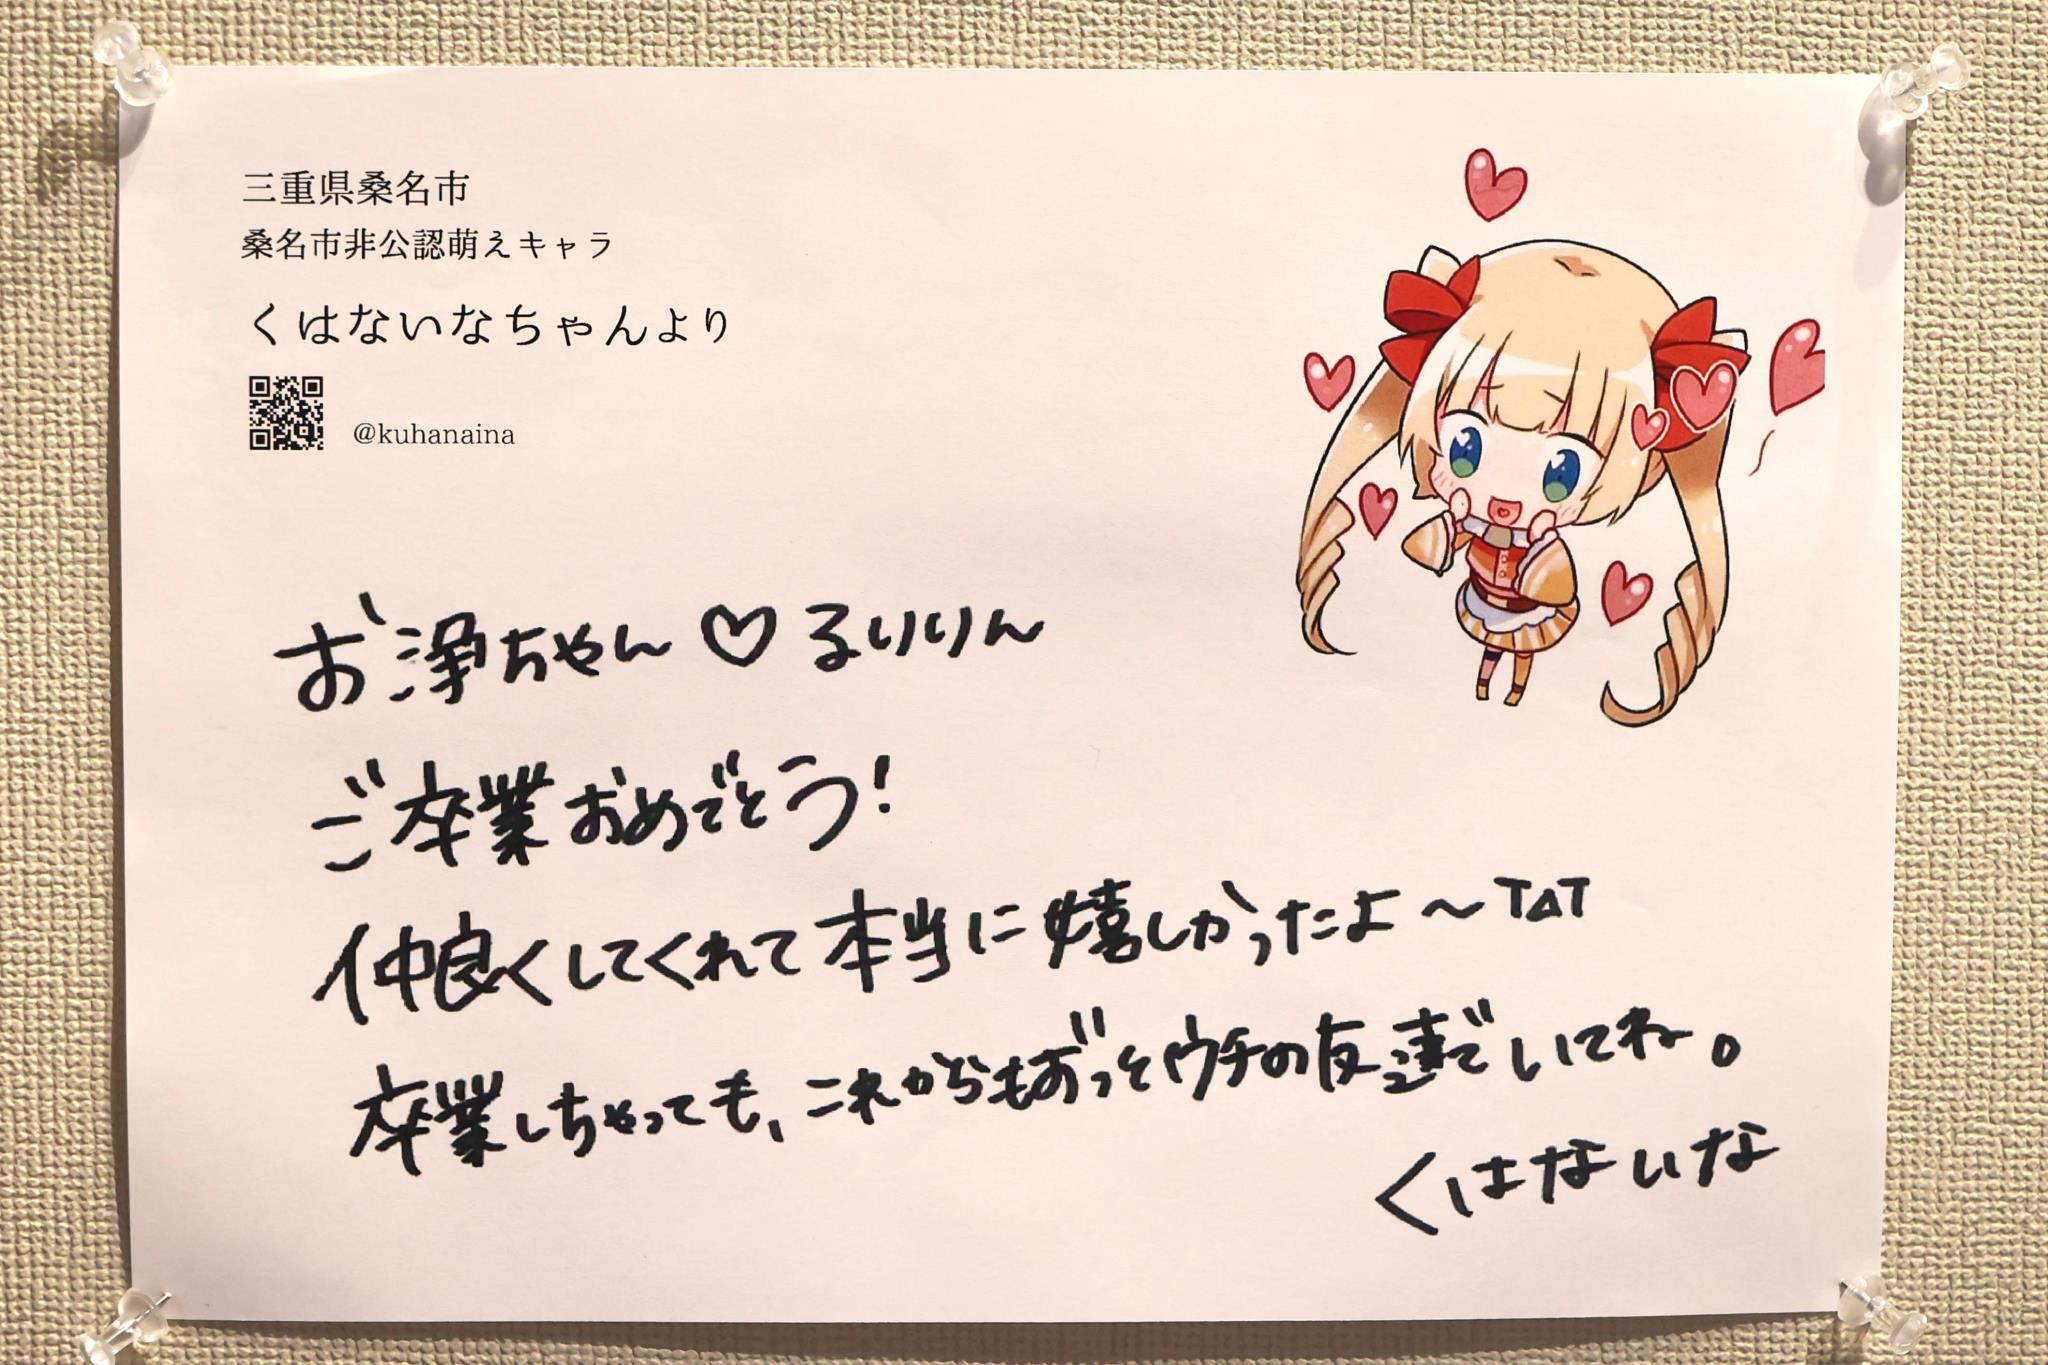 三重県桑名市
桑名市非公認萌えキャラ
くはないなちゃんより
@kuhanaina
お浄ちゃん♡るりりん
ご卒業おめでとう!
仲良くしてくれて本当に嬉しかったよ〜TAT
卒業しちゃっても、これからもずっとウチの友達でいてね。
くはないな